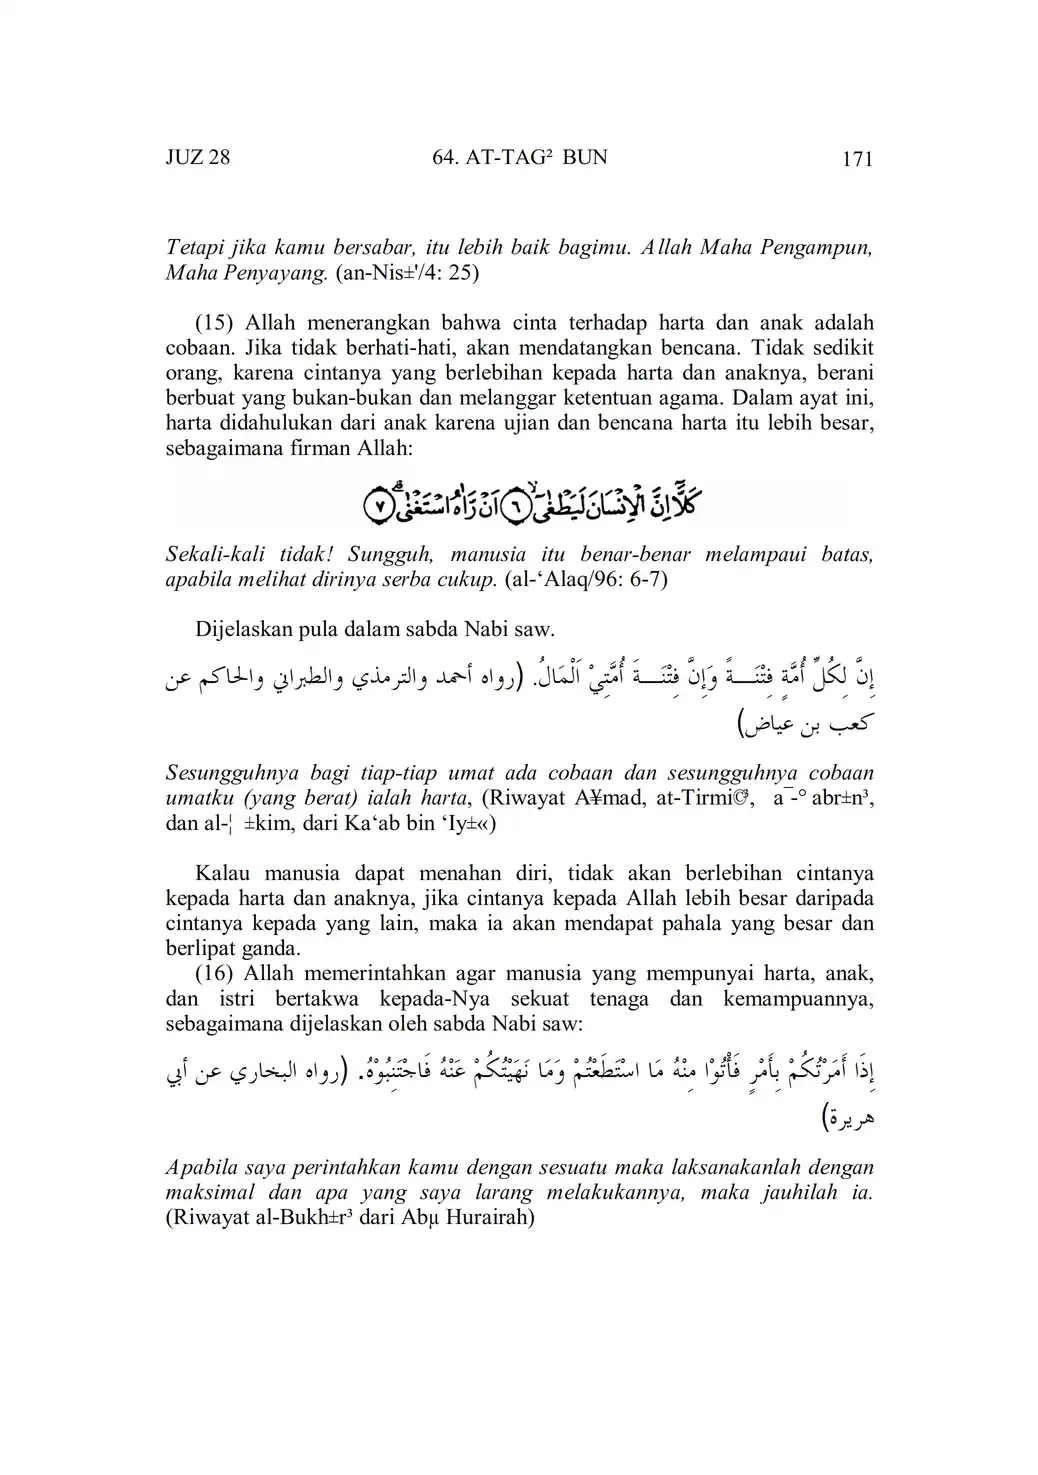 JUZ 28 64. AT-TAG² BUN 171
Tetapi jika kamu bersabar, itu lebih baik bagimu. Allah Maha Pengampun,
Maha Penyayang. (an-Nis±'/4: 25)
(15) Allah menerangkan bahwa cinta terhadap harta dan anak adalah
cobaan. Jika tidak berhati-hati, akan mendatangkan bencana. Tidak sedikit
orang, karena cintanya yang berlebihan kepada harta dan anaknya, berani
berbuat yang bukan-bukan dan melanggar ketentuan agama. Dalam ayat ini,
harta didahulukan dari anak karena ujian dan bencana harta itu lebih besar,
sebagaimana firman Allah:
كَلَّآ اِنَّ الْاِنْسَانَ لَيَطْغٰىٓ ۙ ٦ اَنْ رَّاٰهُ اسْتَغْنٰىۗ ٧
Sekali-kali tidak! Sungguh, manusia itu benar-benar melampaui batas,
apabila melihat dirinya serba cukup. (al-‘Alaq/96: 6-7)
Dijelaskan pula dalam sabda Nabi saw.
إِنَّ لِكُلِّ أُمَّةٍ فِتْنَـــةً وَإِنَّ فِتْنَـــةَ أُمَّتِيْ اَلْمَالُ. (رواه أحمد والترمذي والطبراني والحاكم عن
كعب بن عياض)
Sesungguhnya bagi tiap-tiap umat ada cobaan dan sesungguhnya cobaan
umatku (yang berat) ialah harta, (Riwayat A¥mad, at-Tirmi©³, a¯-° abr±n³,
dan al-¦ ±kim, dari Ka‘ab bin ‘Iy±«)
Kalau manusia dapat menahan diri, tidak akan berlebihan cintanya
kepada harta dan anaknya, jika cintanya kepada Allah lebih besar daripada
cintanya kepada yang lain, maka ia akan mendapat pahala yang besar dan
berlipat ganda.
(16) Allah memerintahkan agar manusia yang mempunyai harta, anak,
dan istri bertakwa kepada-Nya sekuat tenaga dan kemampuannya,
sebagaimana dijelaskan oleh sabda Nabi saw:
إِذَا أَمَرْتُكُمْ بِأَمْرٍ فَأْتُوْا مِنْهُ مَا اسْتَطَعْتُمْ وَمَا نَهَيْتُكُمْ عَنْهُ فَاجْتَنِبُوْهُ. (رواه البخاري عن أبي
هريرة)
Apabila saya perintahkan kamu dengan sesuatu maka laksanakanlah dengan
maksimal dan apa yang saya larang melakukannya, maka jauhilah ia.
(Riwayat al-Bukh±r³ dari Abµ Hurairah)